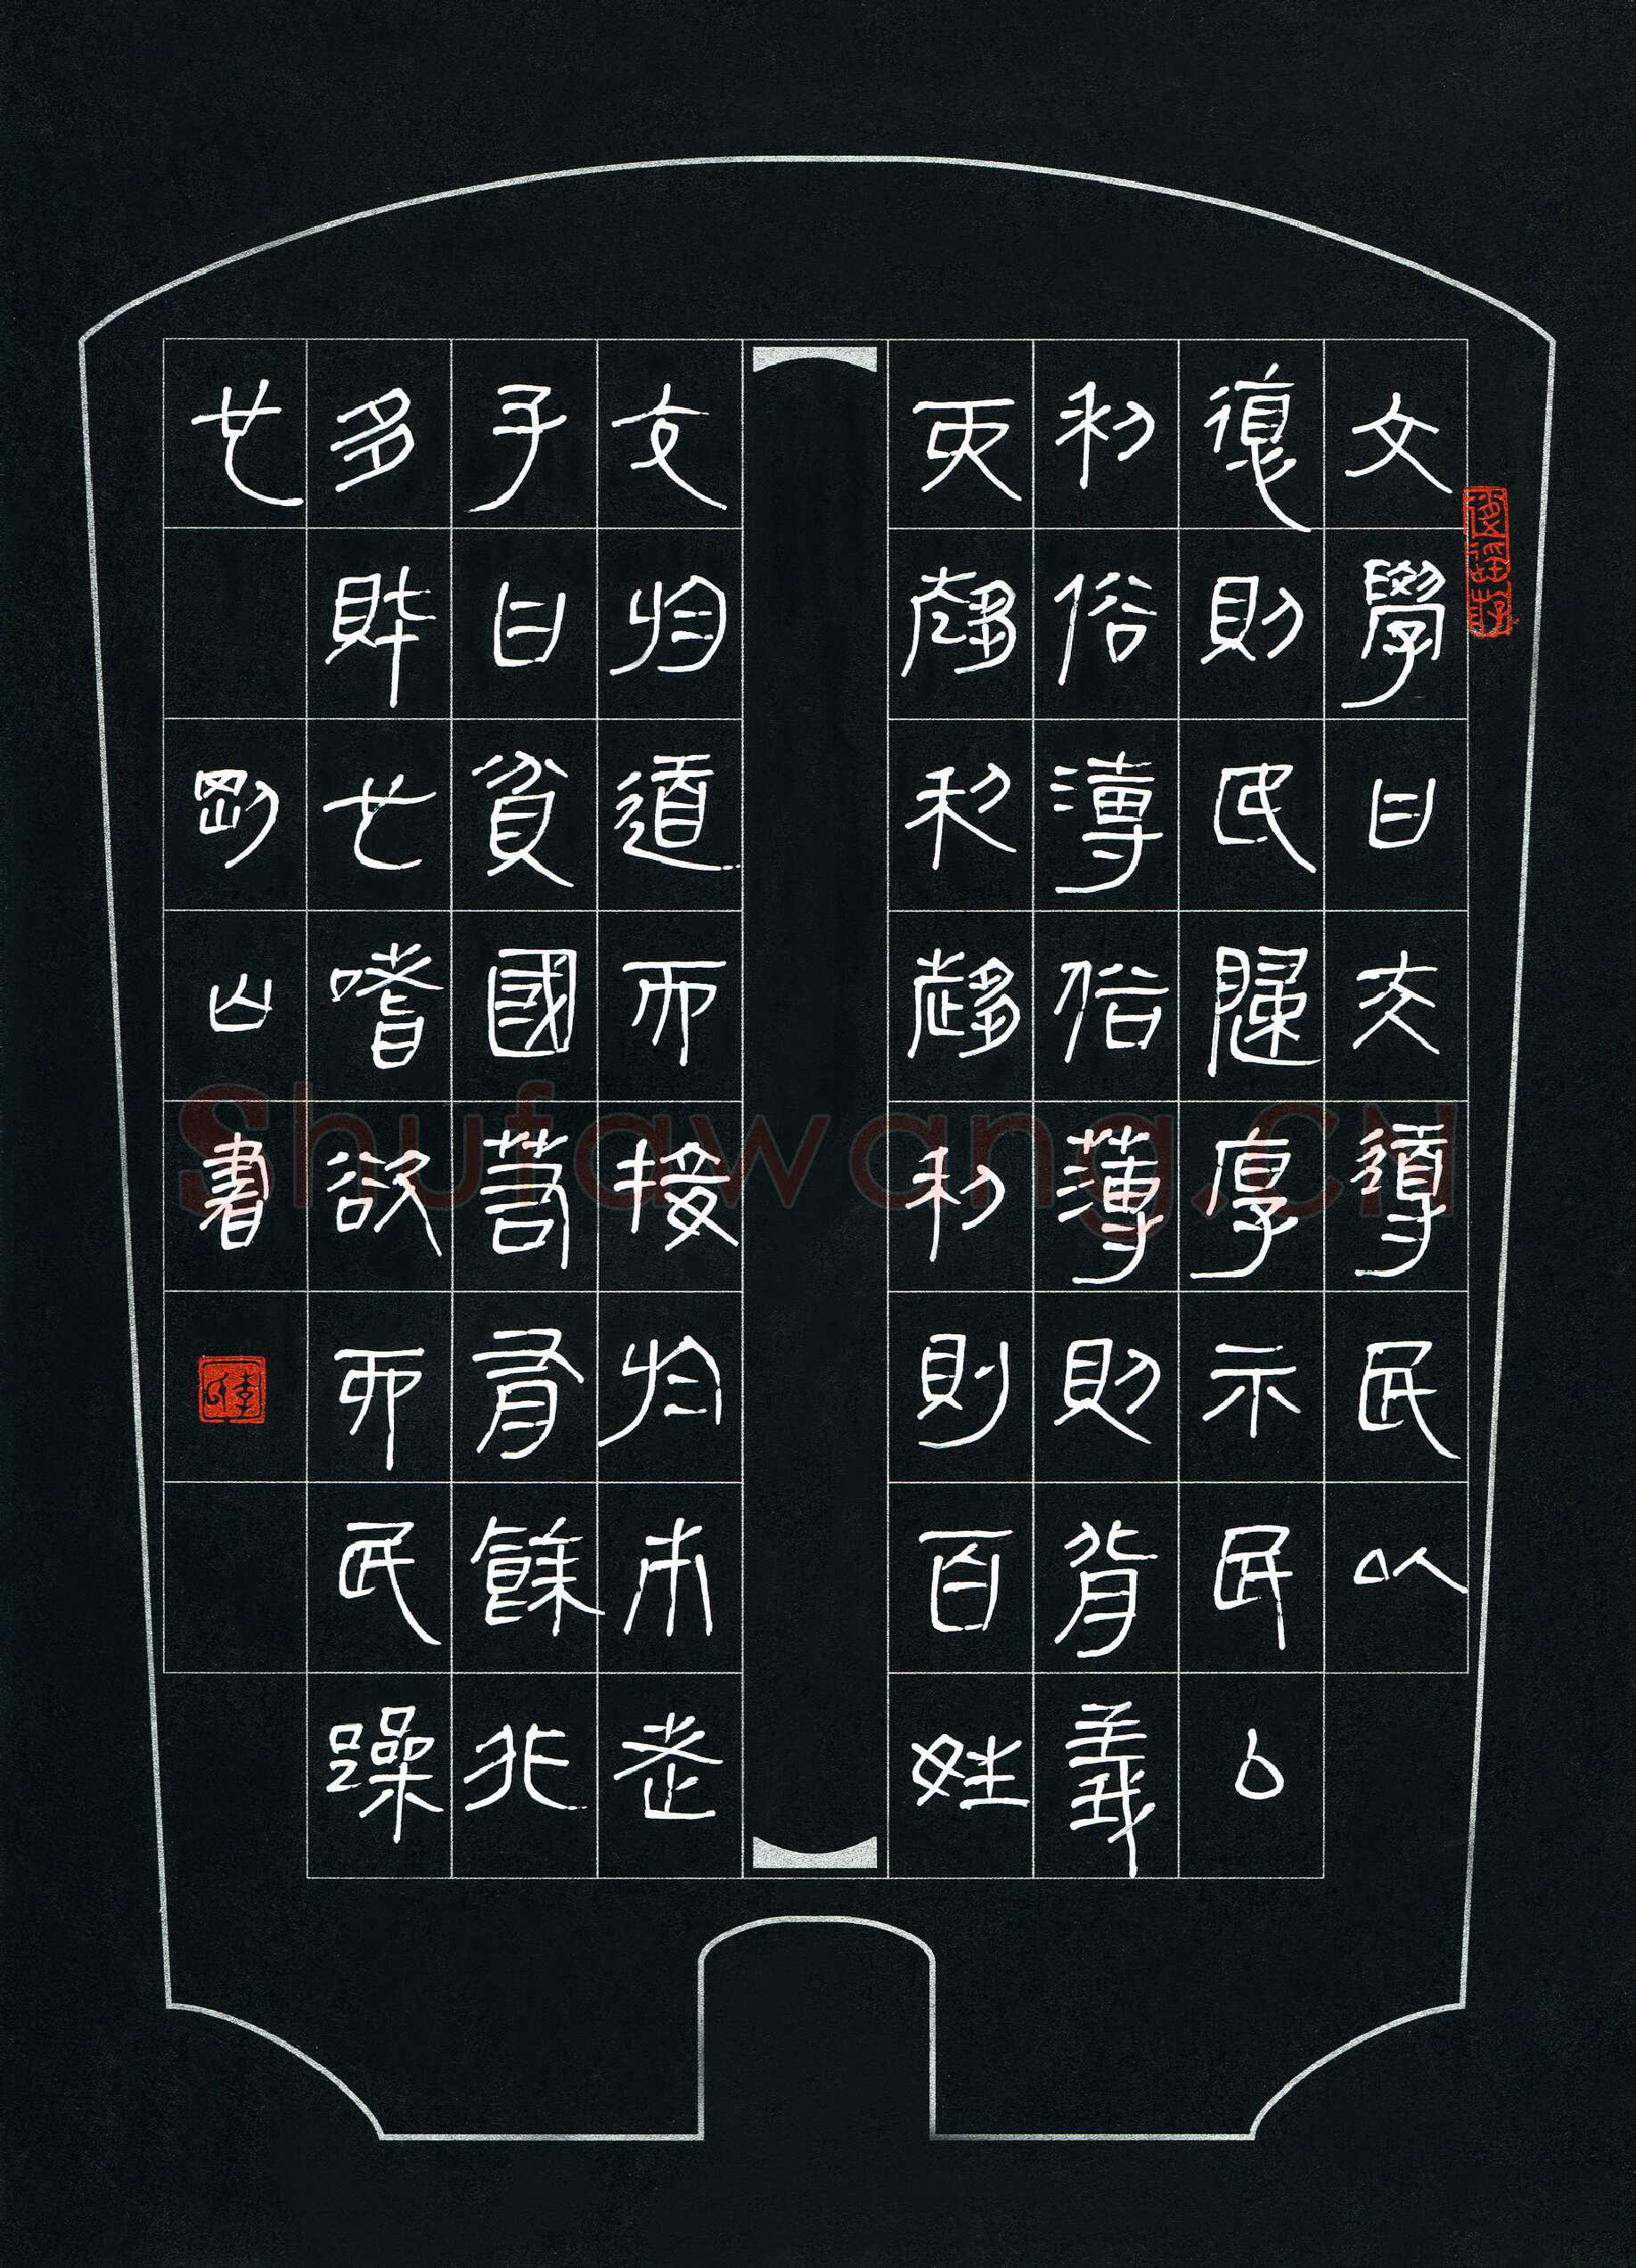 文學曰夫導民以
德則民歸厚示民以
利俗溥俗薄則背義
而趨利趨利則百姓
交於道而接於市老
子曰貧國若有餘非
多財也嗜欲而民躁
也 剛山書
Shufawang.CN